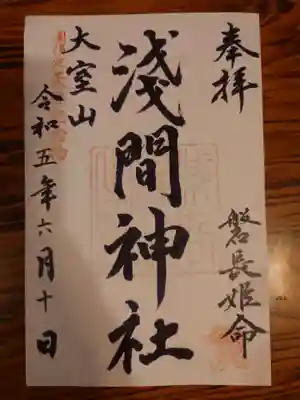 奉拝
磐長姫命
淺間神社
大室山
令和五年六月十日